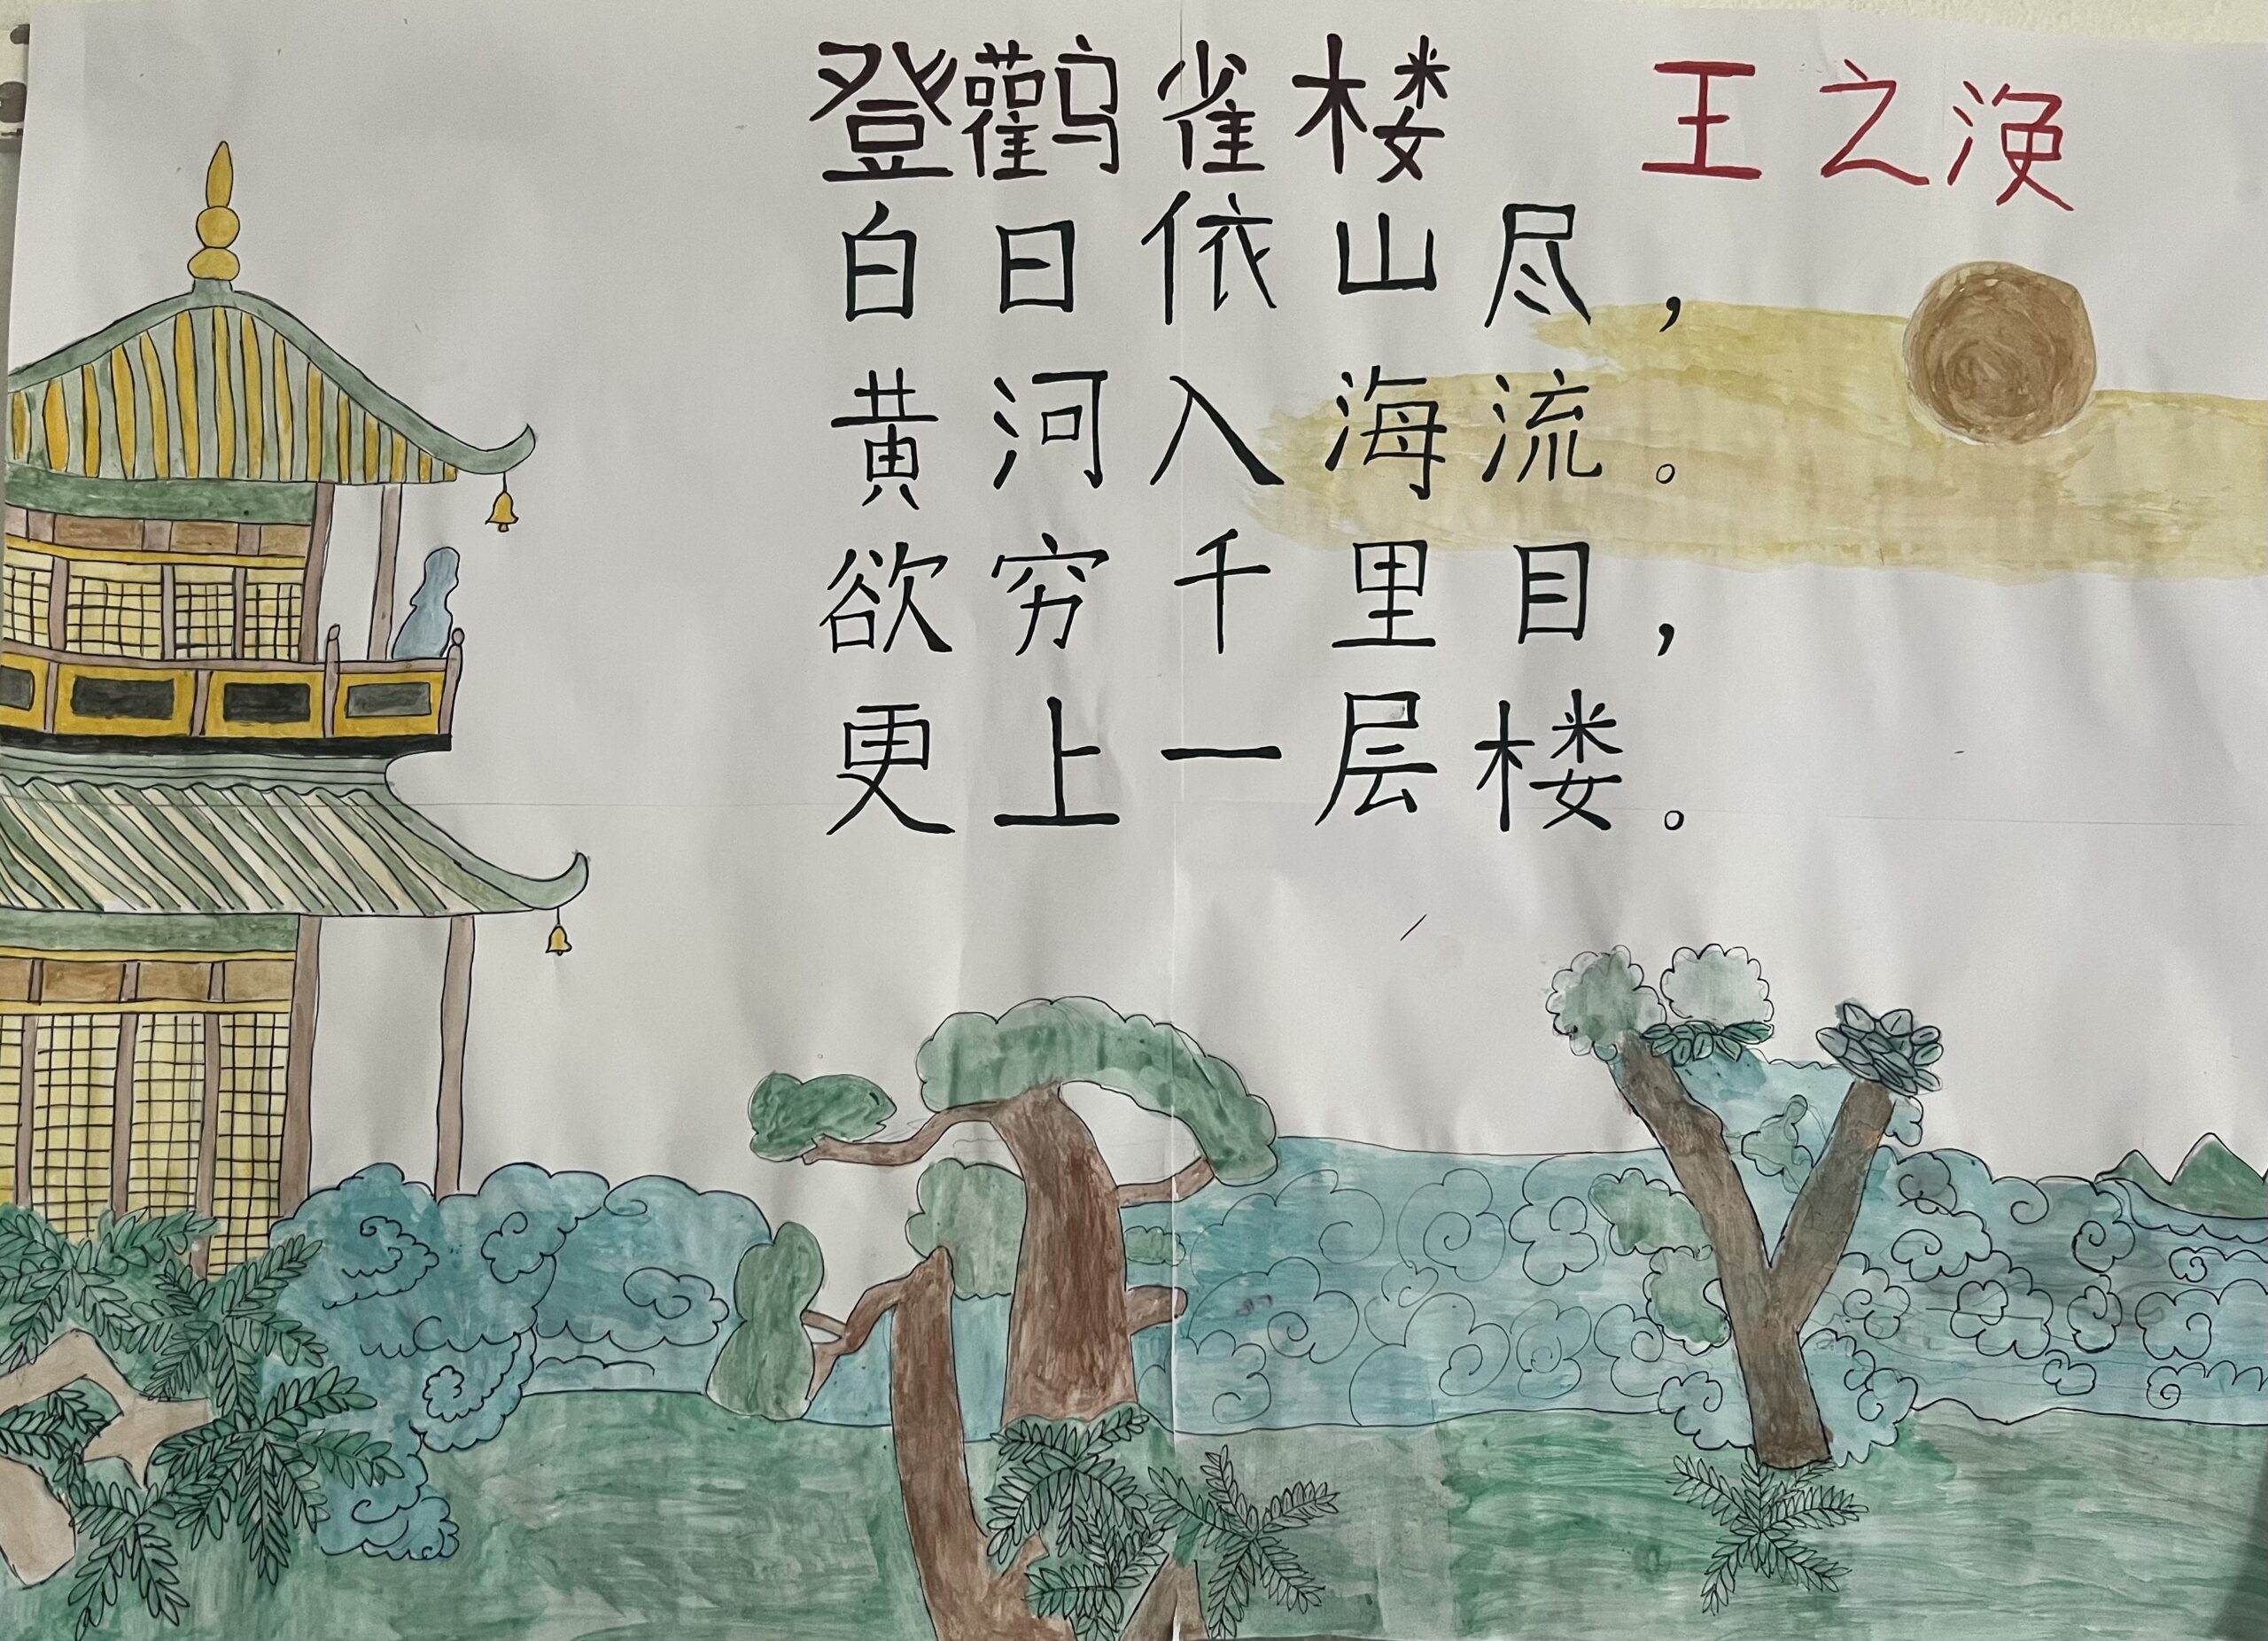 登鸛雀楼 王之渙
白日依山尽，
黄河入海流。
欲穷千里目，
更上一层楼。